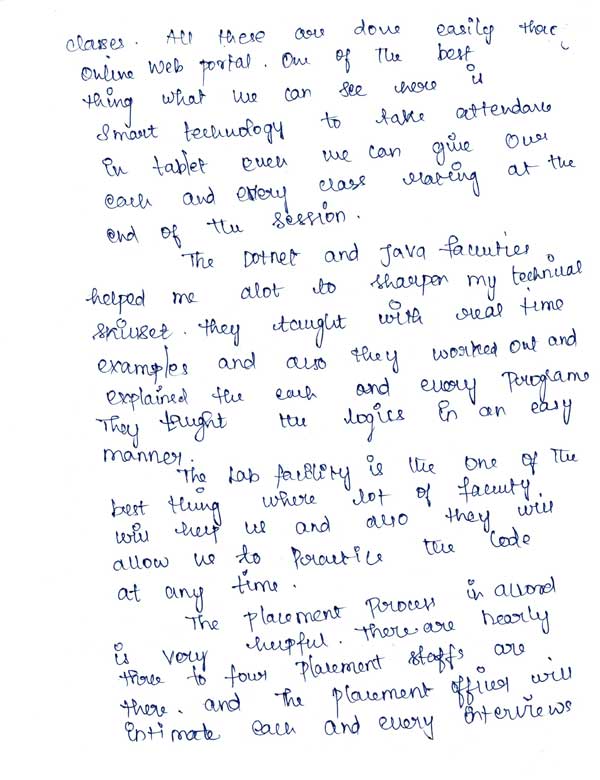 classes. All these are done easily
Online Web portal. One of The best
thing what we can see here is
Smart technology to take attendance
in tablet even we can give Our
each and every class rating at the
end of the session.
The Dotnet and Java faculties
helped me alot to sharpen my technical
skillset. they taught with real time
examples and also they worked out and
explained the each and every Programs
They taught the logics in an easy
manner.
The Lab facility is the one of The
best thing where lot of faculty
will help us and also they will
allow us to Practice the Code
at any time.
The placement Process in allond
is very helpful. There are nearly
three to four Placement staffs are
there. and The placement officer will
intimate each and every interviews